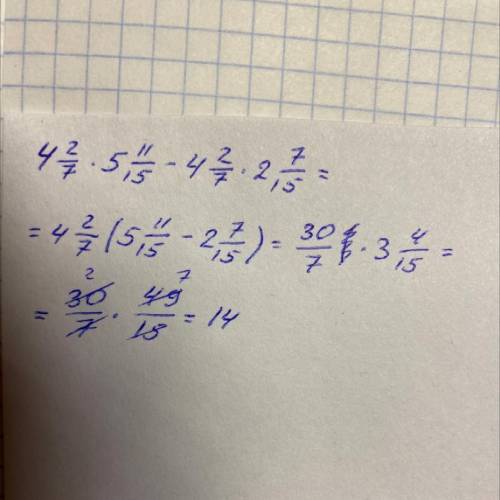 4 2/7 · 5 11/15 - 4 2/7 · 2 7/15 =
= 4 2/7 (5 11/15 - 2 7/15) = 30/7 · 3 4/15 =
= 30/7 · 49/15 = 14